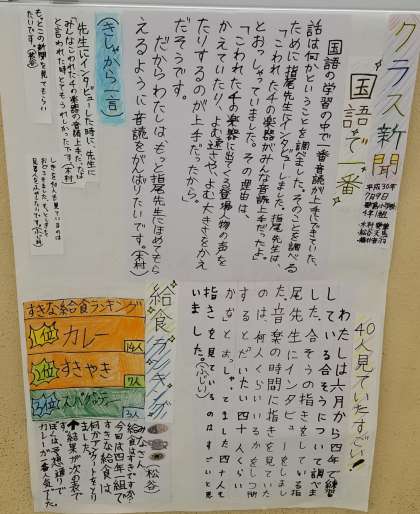 クラス新聞
国語で一番
平成30年
7月9日
国語の学習の中で一番音読が上手にできていた
話は何かということを調べました。そのことを調べる
ために指尾先生にインタビューしました。指尾先生は、
「こわれた千の楽器がみんな音読上手だったよ」
とおっしゃっていました。その理由は、
「こわれた千の楽器に出てくる登場人物の声を
かえていたり、よむ速さや、よむ大きさをかえ
たりするのが上手だったから。」
だそうです。
だからわたしはもっと指尾先生にほめてもら
えるように音読をがんばりたいです。(木村)
きしゃから一言
先生にインタビューした時に、先生に
「みんなこわれた千の楽器の音読上手だったね」
と言われた時とてもうれしかったです。(木村)
もっとこの新聞を見てもらい
たいです。
40人見ていたすごい!
わたしは六月から四年で練習
している合そうについて調べま
した。合そうの指きをしている指
尾先生にインタビューをしまし
た。音楽の時間に指きを見ていた
のは、何人くらいいるかをしつ問
するとだいたい四十人くらい
かなとおっしゃってました四十人も
指きを見ているのはすごいと思
いました。(ふじい)
給食ランキング
すきな給食ランキング
1位 カレー 14人
2位 すきやき 7人
3位 スパゲッティー 3人
松谷
みなさん
給食はすきですか?
今回は四年一組で
すきな給食は
何かアンケートをとり
ました。
結果が次の表で
す。予想通りで
カレーが一番人気でした。